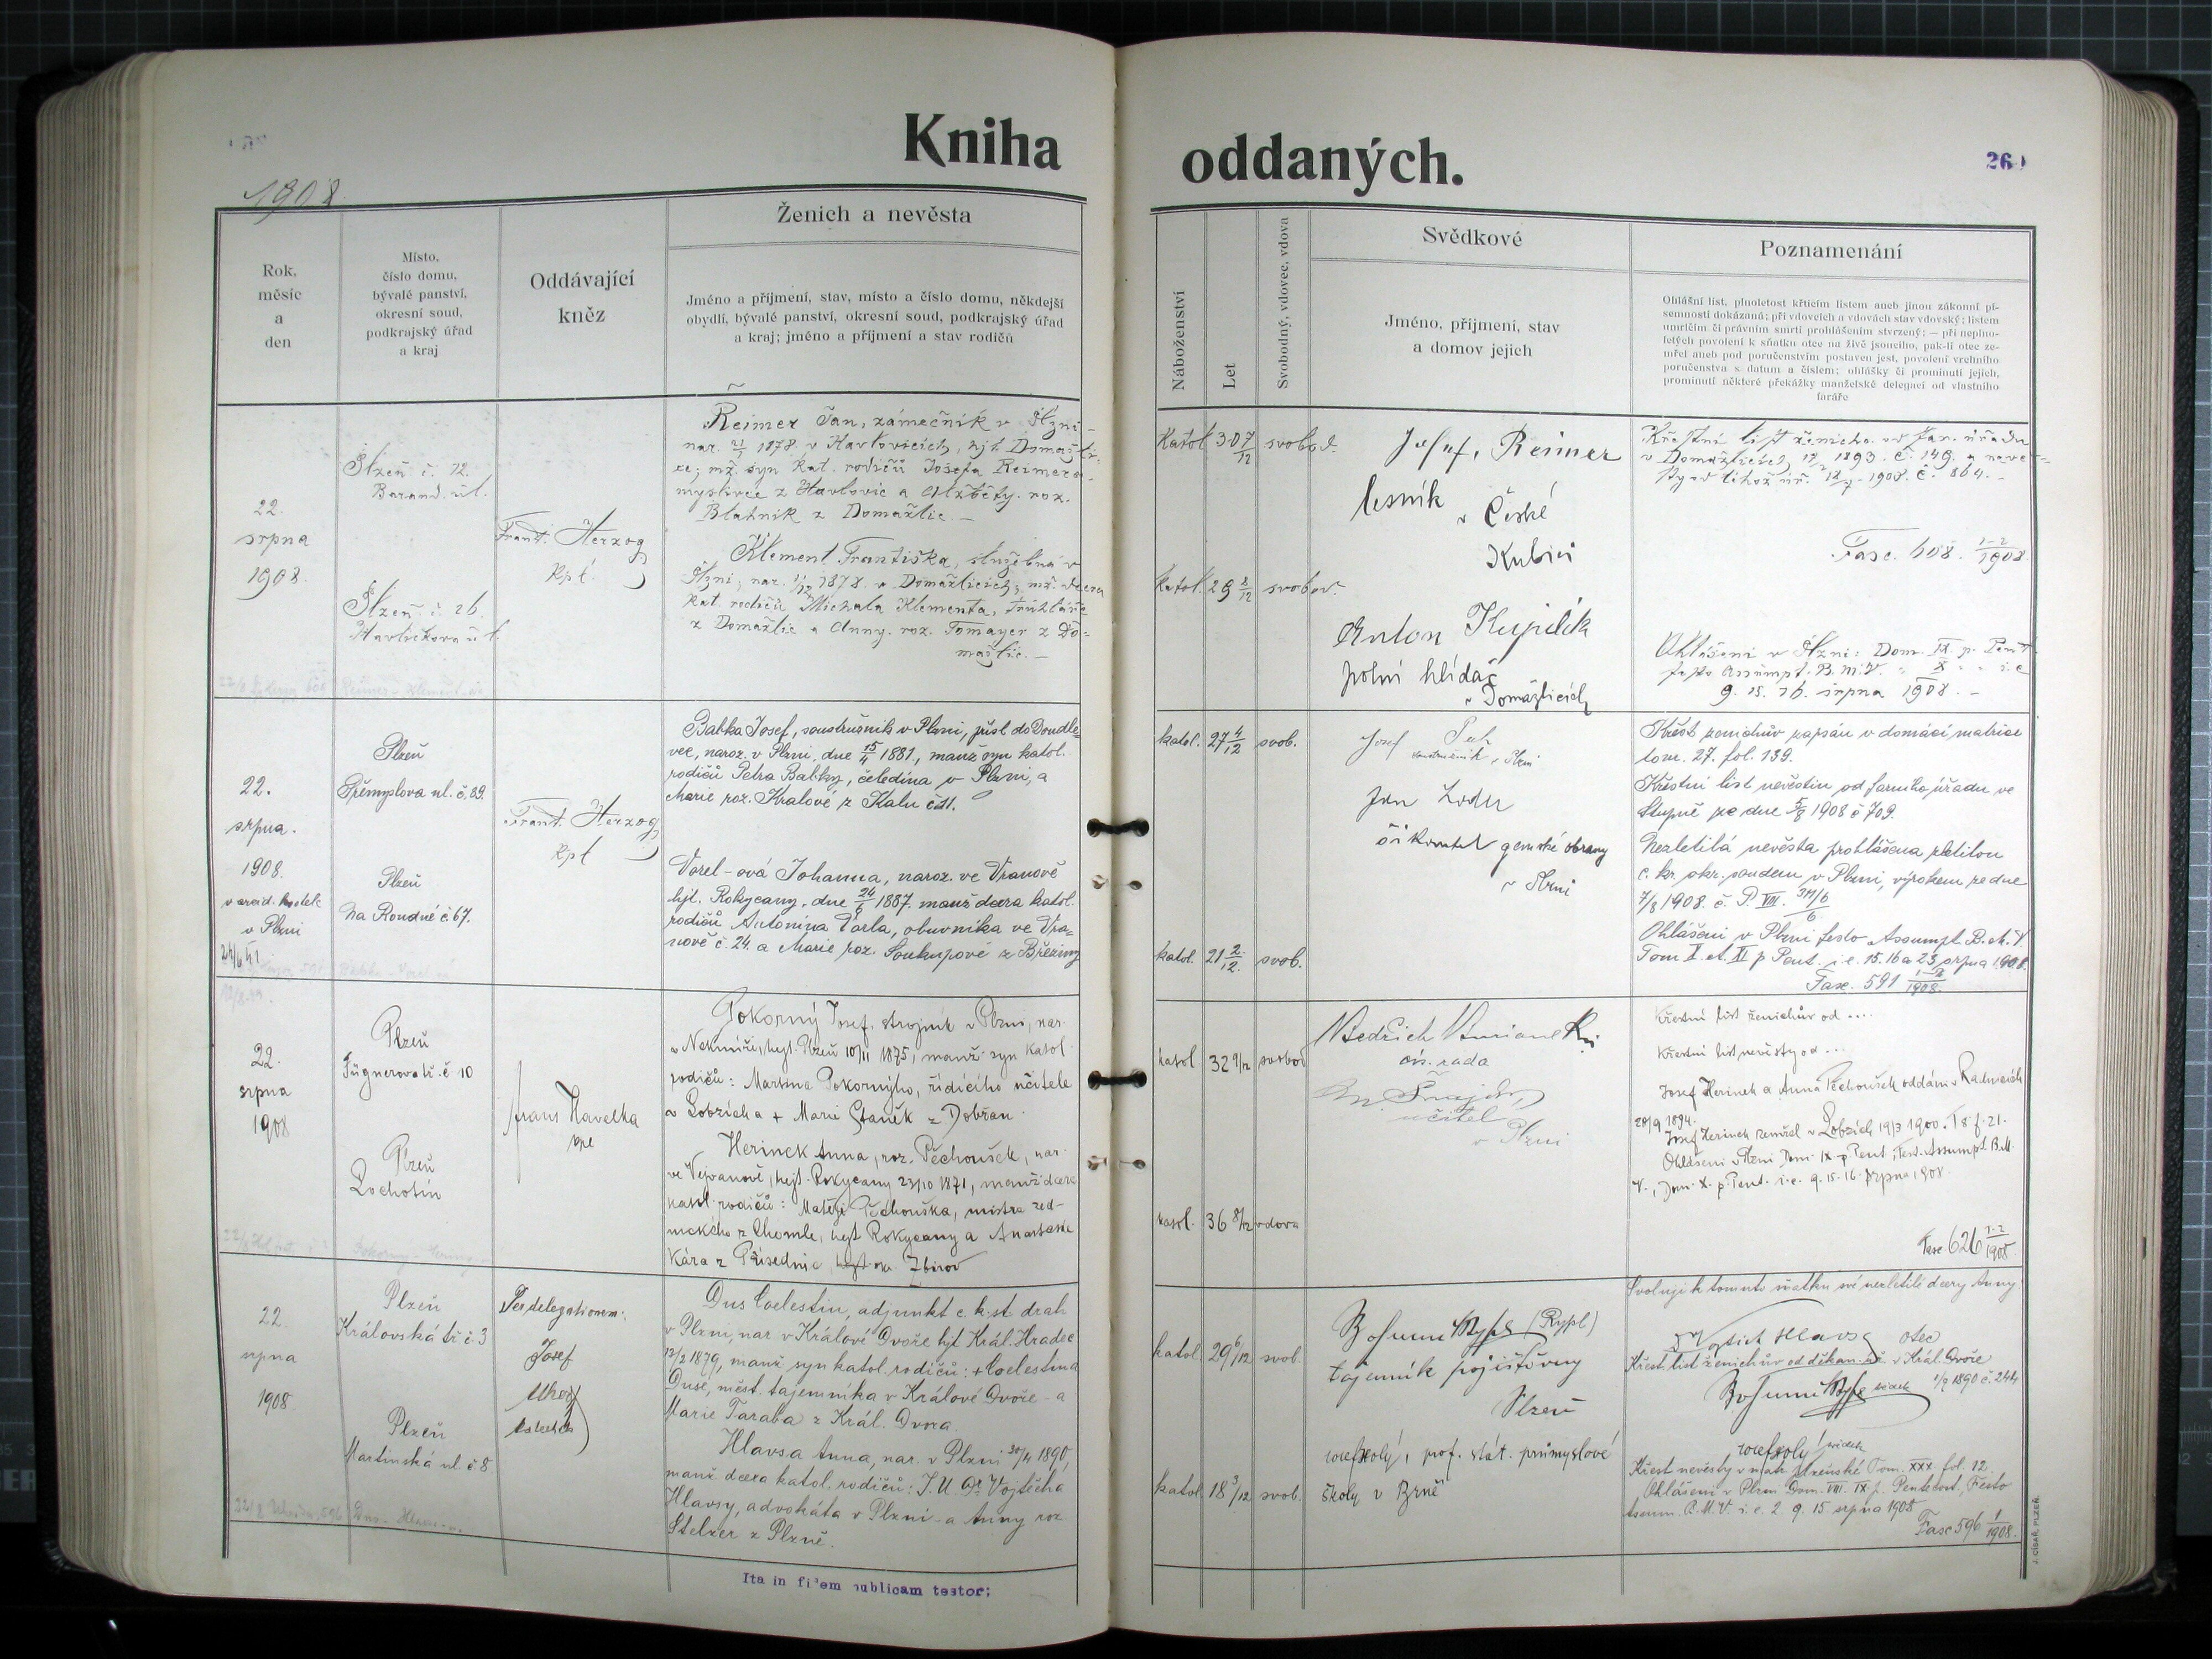 Kniha oddaných.
260
1908
Rok, měsíc a den
Místo, číslo domu, bývalé panství, okresní soud, podkrajský úřad a kraj
Oddávající kněz
Ženich a nevěsta
Jméno a příjmení, stav, místo a číslo domu, někdejší
obydlí, bývalé panství, okresní soud, podkrajský úřad
a kraj; jméno a příjmení a stav rodičů
Náboženství
Let
Svobodný, vdovec, vdova
Svědkové
Jméno, příjmení, stav
a domov jejich
Poznamenání
Ohlášní list, plnoletost křticím listem aneb jinou zákonní pí-
semností dokázaná; při vdovcích a vdovách stav vdovský; listem
umrlčím či právním smrti prohlášením stvrzený; — při neplno-
letých povolení k sňatku otce na živě jsoucího, pak-li otec ze-
mřel aneb pod poručenstvím postaven jest, povolení vrchního
poručenstva s datum a číslem; ohlášky či prominutí jejich,
prominutí některé překážky manželské delegací od vlastního
faráře
22.
srpna
1908.
Plzeň č. 12.
Barand. ul.
Plzeň č. 26.
Havlíčkova ul.
Frant. Herzog
kpl.
Reimer Jan, zámečník v Plzni -
nar. 1878. v Havlovicích, hjt. Domažli-
ce; mž. syn kat. rodičů Josefa Reimera
myslivce z Havlovic a Alžběty roz.
Blatník z Domažlic. —
Klement Františka, služebná v
Plzni; nar. 1878. v Domažlicích; mž. dcera
kat. rodičů Michala Klementa, truhláře
z Domažlic a Anny. roz. Tomayer z Do-
mažlic. —
katol 30 7/12 svobod.
katol. 29 2/12 svobod.
Josef Reimer
lesník
v České
Kubici
Anton Kupilík
polní hlídač
v Domažlicích
Křestní list ženicha od far. úřadu
v Domažlicích, 1893. č. 149. a nevě-
sty od téhož úř. 1908. č. 864. —
Fasc. 608. 1-2/1908.
Ohlášeni v Plzni: Dom. IX p. Pent.
festo Assumpt. B.M.V. " X " " i.e
9. 15. 16. srpna 1908. —
22.
srpna.
1908.
v Plzni
Plzeň
Přemyslova ul. č. 89.
Plzeň
Na Roudné č 67.
Frant. Herzog
kpl
Babka Josef, soustružník v Plzni, přísl. do Doudle-
vec, naroz. v Plzni, dne 15/4 1881., manž syn katol.
rodičů Petra Babky, čeledína v Plzni, a
Marie roz. Kralové z Kalu č 11.
Vorel-ová Johanna, naroz. ve Vranově
hjt. Rokycany, dne 24/6 1887. manž dcera katol.
rodičů Antonína Vorla, obuvníka ve Vra-
nově č. 24. a Marie roz. Soukupové z Březiny
katol. 27 4/12 svob.
katol. 21 2/12. svob.
Josef
soustružník v Plzni
Jan
zemské obrany
v Plzni
Křest ženichův zapsán v domácí matrice
tom. 27. fol. 139.
Křestní list nevěstin od farního úřadu ve
Stupně ze dne 5/8 1908 č 709.
Nezletilá nevěsta prohlášena zletilou
c. kr. okr. soudem v Plzni, výrokem ze dne
7/8 1908. č. P. VIII. 311/6
6
Ohlášeni v Plzni festo Assumpt. B.M.V.
Dom X. et. XI p Pent. i.e. 15. 16 a 23 srpna 1908.
Fasc. 591 1-2/1908.
22.
srpna
1908
Plzeň
Fügnerova tř. č. 10
Plzeň
Lochotín
Frant Havelka
Pokorný Josef, strojník v Plzni, nar.
v Nekmíři, hejt. Plzeň 10/11 1875, manž. syn katol.
rodičů: Martina Pokorného, řídícího učitele
v Lobzích a + Marie Staněk z Dobřan.
Herinek Anna, roz. Pěchouček, nar.
ve Vejvanově, hejt. Rokycany 23/10 1871, manž dcera
katol. rodičů: Matěje Pěchoučka, mistra zed-
nického z Chomle, hejt Rokycany a Anastasie
Kára z Přísednic, okr. Zbirov
katol 32 9/12 svobod
katol. 36 8/12 vdova
Bedřich
ois. rada
učitel
v Plzni
Křestní list ženichův od ....
Křestní list nevěsty od ...
Josef Herinek a Anna Pěchouček oddáni v Radnicích
20/9 1894.
Josef Herinek zemřel v Lobzích 19/3 1900. T 8 f. 21.
Ohlášeni v Plzni Dom IX p Pent, Fest. Assumpt B.M.
V., Dom X. p. Pent. i.e. 9. 15. 16. srpna 1908
Fasc. 626 1-2/1908.
22
srpna
1908
Plzeň
Královská tř č. 3
Plzeň
Martinská ul č 8
Per delegationem:
Josef
katecheta
Dus Coelestin, adjunkt c.k. st. drah
v Plzni, nar. v Králové Dvoře hjt Král. Hradec
12/2 1879, manž syn katol. rodičů: + Coelestina
Duse, měst. tajemníka v Králové Dvoře - a
Marie Taraba z Král. Dvora.
Hlavsa Anna, nar. v Plzni 30/4 1890,
manž dcera katol. rodičů: J.U.Dr Vojtěcha
Hlavsy, advokáta v Plzni - a Anny roz.
Stelzer z Plzně.
katol. 29 6/12 svob.
katol 18 3/12 svob.
Bohumil Rypl (Rypl)
tajemník pojišťovny
Plzeň
prof. stát. průmyslové
školy v Brně
Svoluji k tomuto sňatku své nezletilé dcery Anny.
Vojtěch Hlavsa otec
Křest. list ženichův od děkan. úř. v Král. Dvoře
1890 č. 244
Bohumil Rypl svědek
svědek
Křest nevěsty v matr. plzeňské Tom. XXX fol. 12
Ohlášeni v Plzni Dom. VIII. IX p. Pentecost, Festo
Assum. B.M.V. i.e. 2. 9. 15 srpna 1908
Fasc 596 1/1908.
Ita in fidem publicam testor:
J. CÍSAŘ, PLZEŇ.